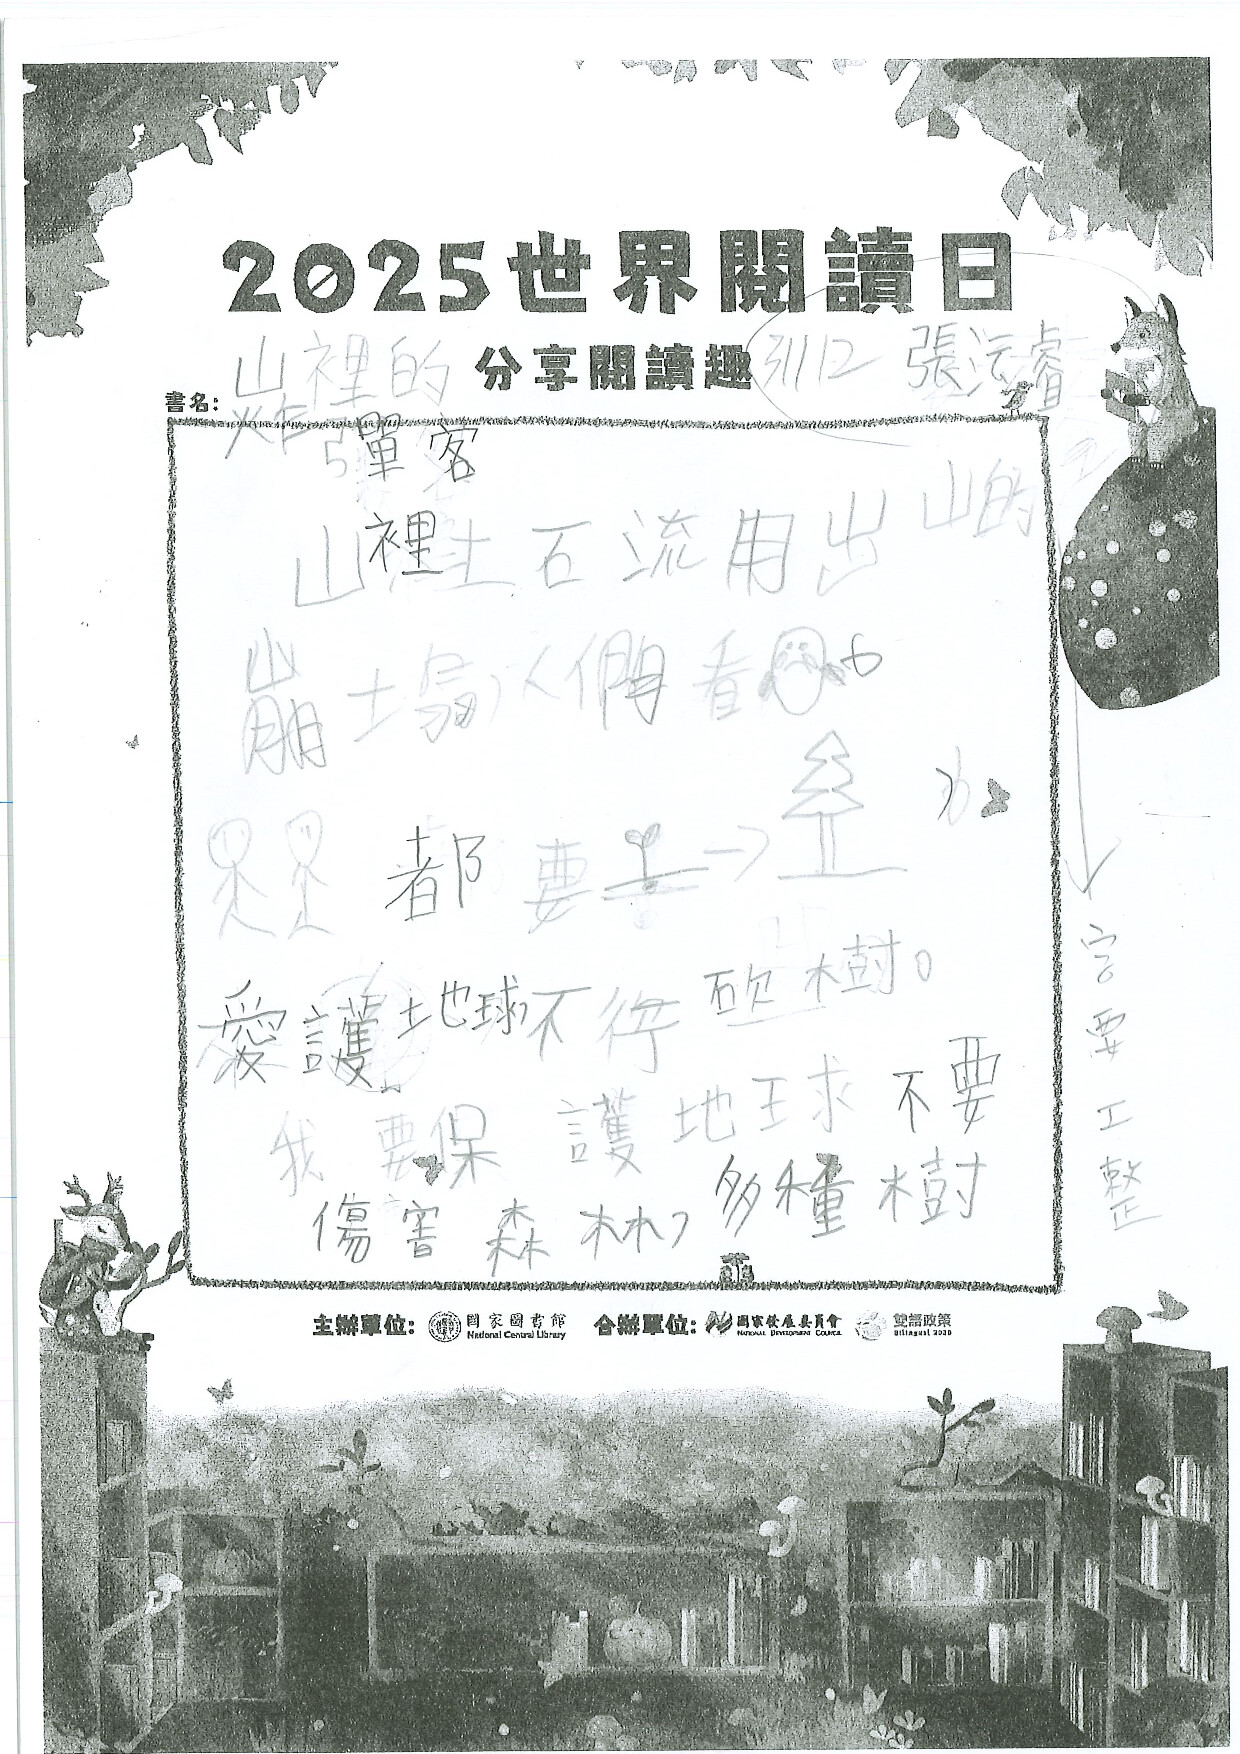 2025世界閱讀日
分享閱讀趣
31112 張浤睿
書名:
山裡的
炸彈客
山裡土石流用出山的
崩塌,人們看
都要
愛護地球,不行砍樹。
我要保護地球不要
傷害森林,多種樹
字要工整
主辦單位: 國家圖書館 National Central Library 合辦單位: 國家發展委員會 National Development Council 雙語政策 Bilingual 2030